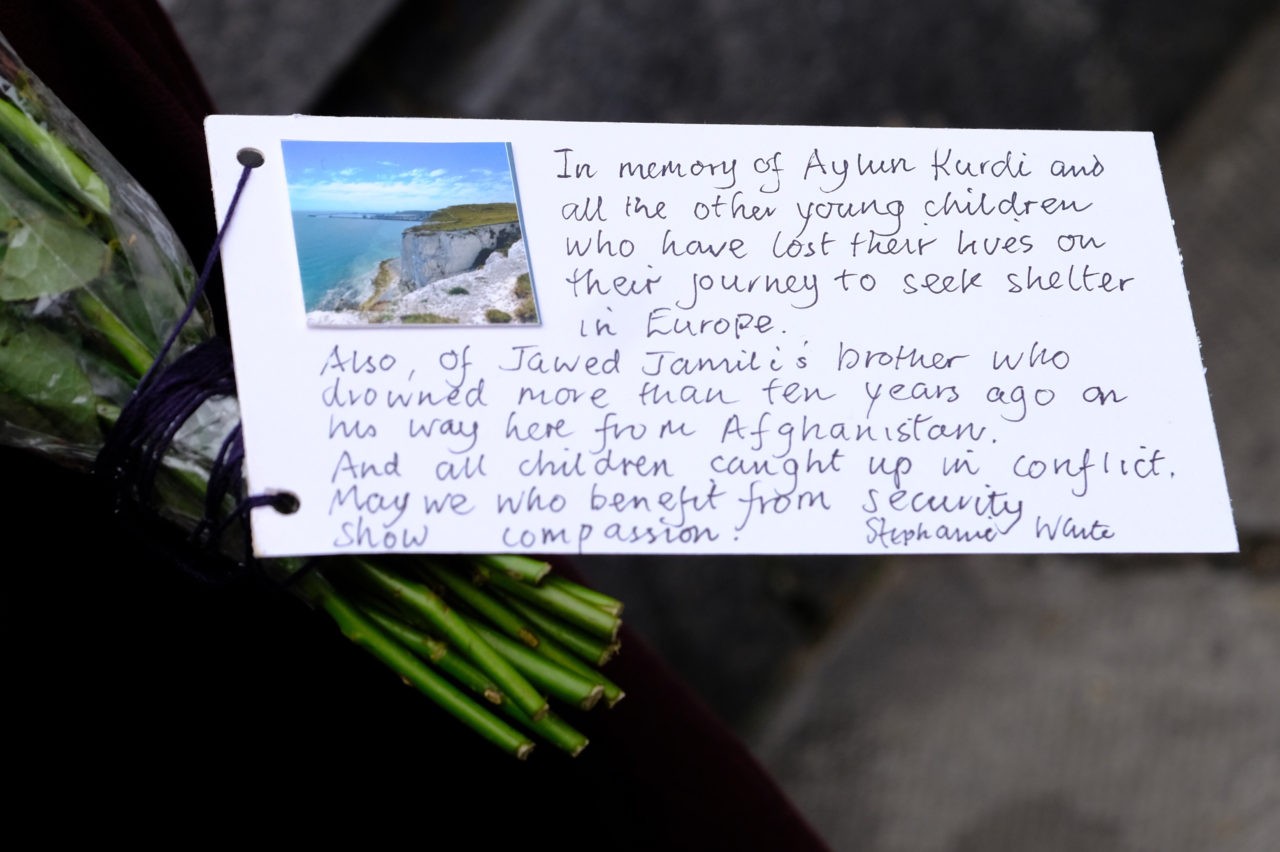 In memory of Aylun Kurdi and
all the other young children
who have lost their lives on
their journey to seek shelter
in Europe.
Also, of Jawed Jamili's brother who
drowned more than ten years ago on
his way here from Afghanistan.
And all children caught up in conflict.
May we who benefit from security
show compassion.
Stephanie